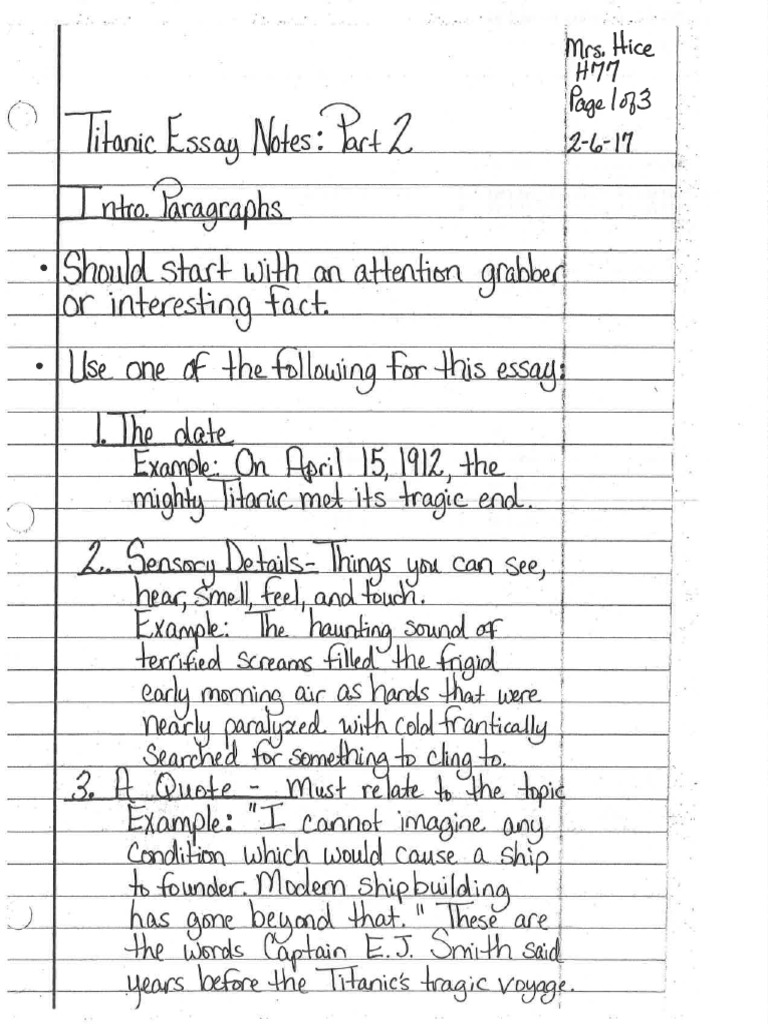 Mrs. Hice
H77
Page 1 of 3
2-6-17
Titanic Essay Notes: Part 2
Intro. Paragraphs
• Should start with an attention grabber
or interesting fact.
• Use one of the following for this essay:
1. The date
Example: On April 15, 1912, the
mighty Titanic met its tragic end.
2. Sensory Details - Things you can see,
hear, smell, feel, and touch.
Example: The haunting sound of
terrified screams filled the frigid
early morning air as hands that were
nearly paralyzed with cold frantically
searched for something to cling to.
3. A Quote - Must relate to the topic
Example: "I cannot imagine any
condition which would cause a ship
to founder. Modern shipbuilding
has gone beyond that." These are
the words Captain E.J. Smith said
years before the Titanic's tragic voyage.